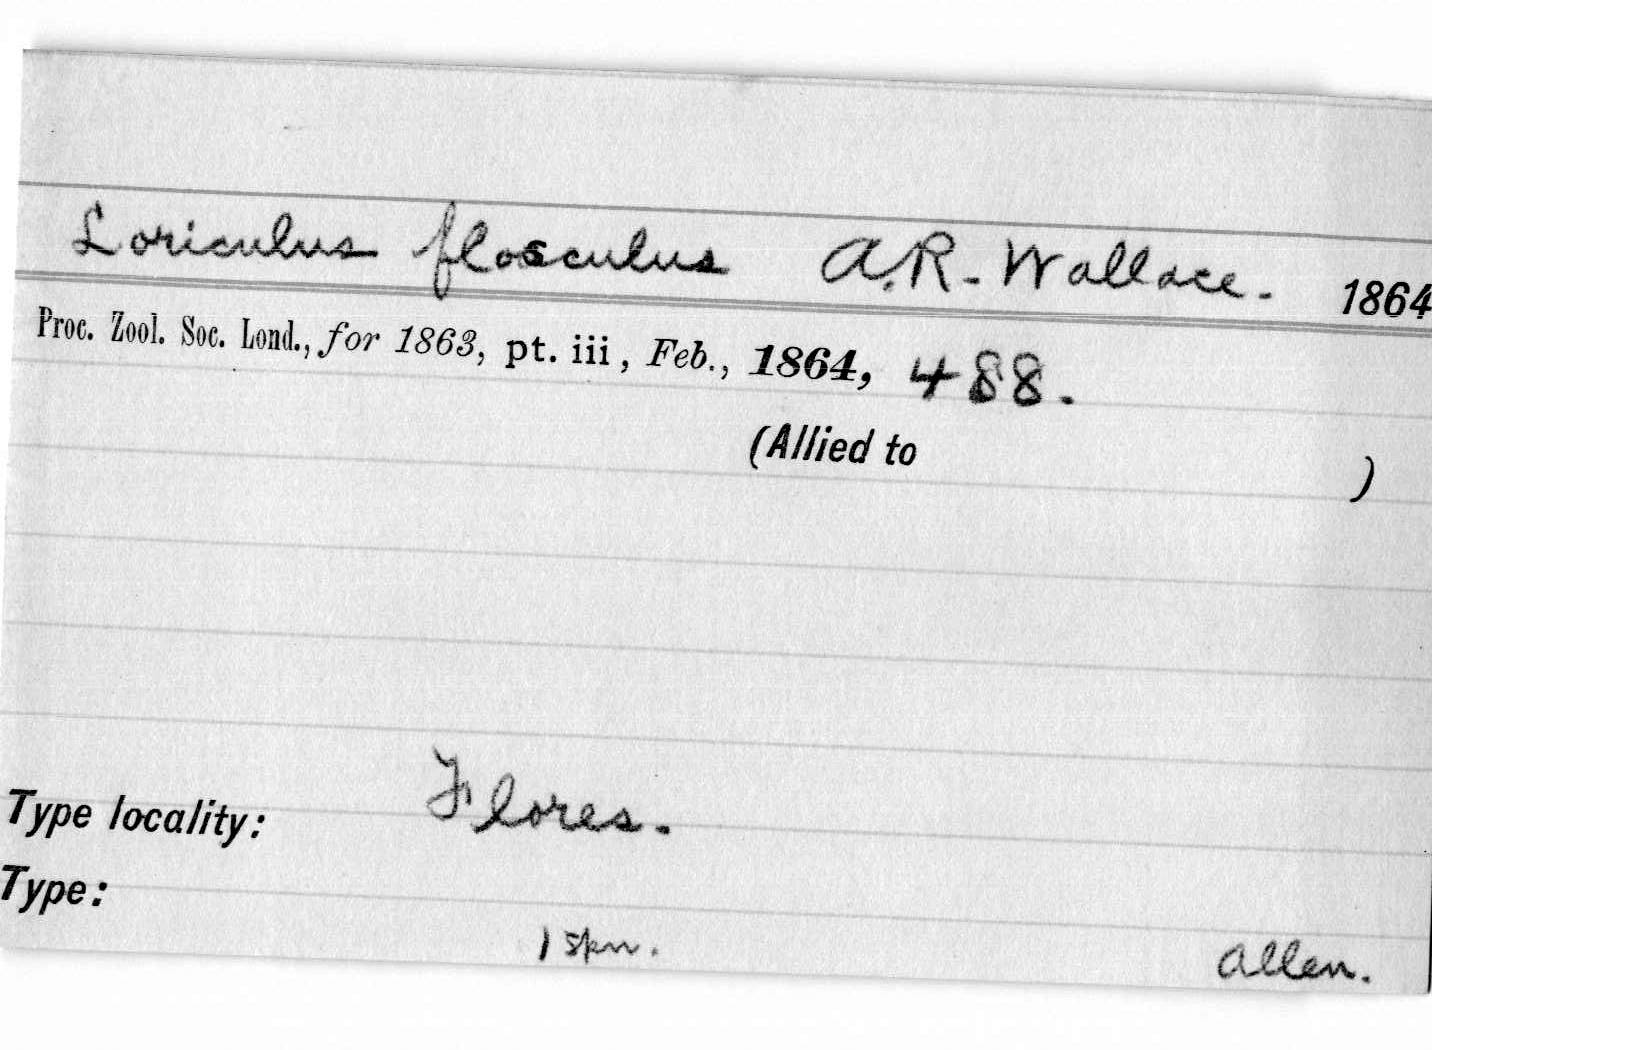 Loriculus flosculus A.R. Wallace. 1864
Proc. Zool. Soc. Lond., for 1863, pt. iii, Feb., 1864, 488.
(Allied to )
Type locality: Flores.
Type:
1 spm. Allen.